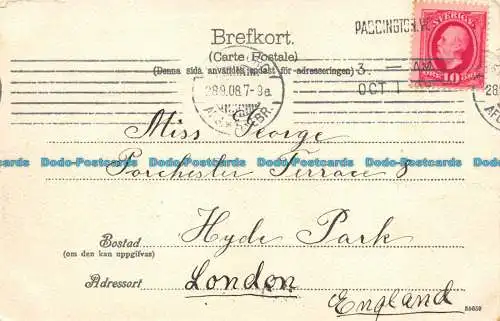 Brefkort.
(Carte Postale)
(Denna sida användes endast för adresseringen)
PADDINGTON. W.
3. AM
OCT 1
SVERIGE
10
28.9.06.7-9a.
Miss George
Porchester Terrace 8
Hyde Park
Bostad
(om den kan uppgifvas)
Adressort
London
England
55659
Dodo-Postcards Dodo-Postcards Dodo-Postcards Dodo-Postcards Dodo-Postcards